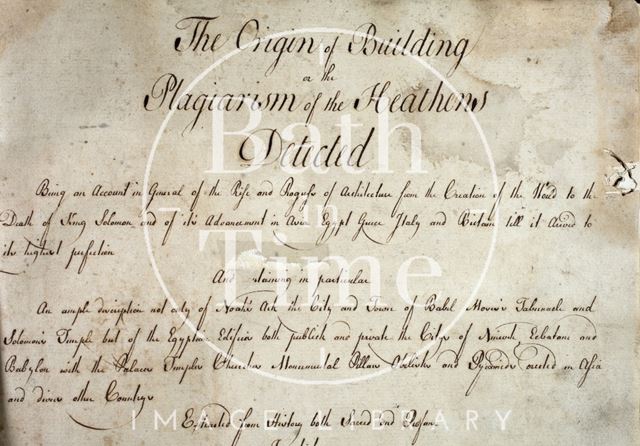 The Origin of Building
or the
Plagiarism of the Heathens
Detected
Being an Account in General of the Rise and Progress of Architecture from the Creation of the World to the
Death of King Solomon and of its Advancement in Asia Egypt Greece Italy and Britain till it Arived to
its highest perfection
And in particular
An ample description not only of Noahs Ark the City and Tower of Babel Moses's Tabernacle and
Solomons Temple but of the Egyptian Edifices both publick and private the Citys of Nineveh, Ecbatane and
Babylon with the Palaces Temples Monumental Pillars Obelisks and Pyramids erected in Asia
and divers other Countrys
Extracted from History both Sacred and Profane
Bath in Time
IMAGE LIBRARY